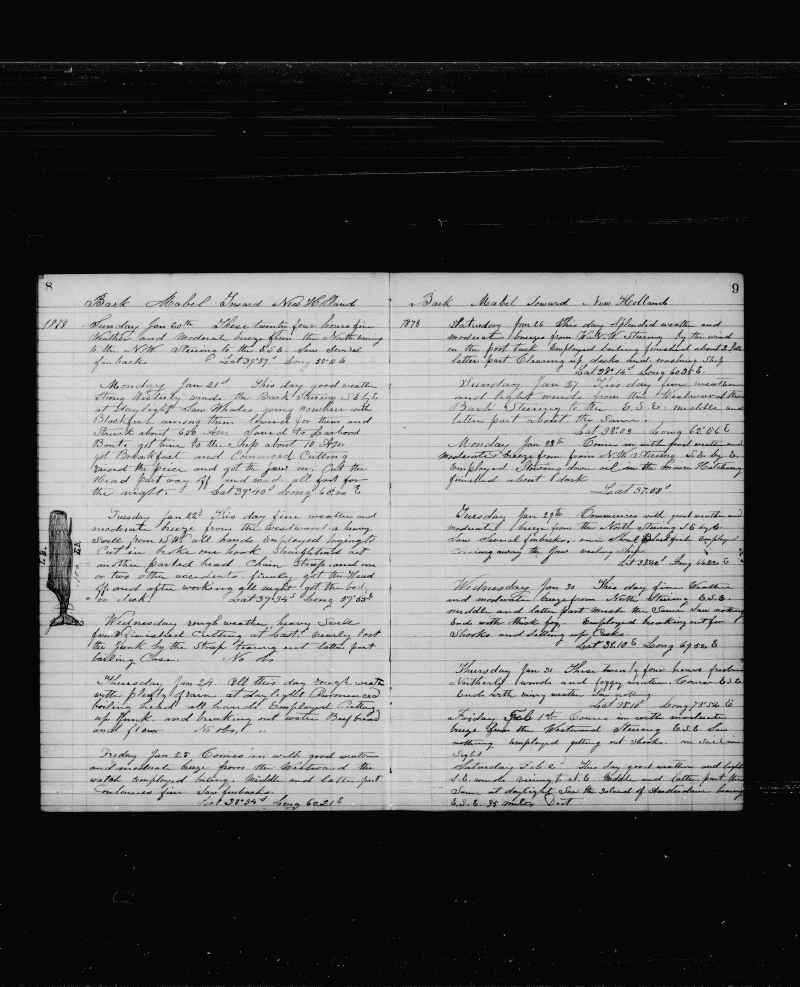 8
Bark Mabel Toward New Holland
1878 Sunday Jan 20th These twenty four hours fine
Weather and Moderat breeze from the North
to the N.W. Steering to the E.S.E. Saw Several
finbacks. Lat 39°59 S Long 58°11 E
Monday Jan 21st This day good weather
Strong Westerly winds the Bark Steering S.E. by E.
at daylight Saw Whales going nowhere with
Blackfish among them lowered for them and
Struck about 6 30 A.M. Larbord
Boat. got him to the Ship about 10 A.M.
got Breakfast and Comenced Cutting
raised the peice and got the jaw in. Cut the
Head part way off and mad all fast for
the night. Lat 39°40 S Long 60°00 E
Tuesday Jan 22d This day fine weather and
moderate breeze from the westward a heavy
Swell from SW. all hands Employed trying to
Cut in broke one hook Straightened out
another parted head Chain Strap and one
or two other accidents finaly got the Head
off and after working all night got the body
in dark. Lat 39°34 S Long 59°55 E
Wednesday rough weather, heavy Swell
finished Cutting at Last. nearly lost
the Junk by the Strap tearing out latter part
bailing Case. No obs
Thursday Jan 24. All this day rough weath
with plenty of rain at daylight Commenced
boiling head all hands Employed Cutting
up Junk. and breaking out water Beef bread
and flour. No obs. "
Friday Jan 25 Comes in with good weather
and moderat breze from the Westward the
watch Employed boiling. Middle and latter part
Continues fine Saw finbacks.
Lat 38°34 S Long 60.21 E
9
Bark Mabel Toward New Holland
1878 Saturday Jan 26 This day Splendid weather and
moderate breeze from W.N.W. Steering by the wind
on the port tack Employed boiling finished about 2 P.M.
latter part Clearing up decks and washing Ship
Lat 38°14 S Long 60 35 E.
Sunday Jan 27. This day fine weather
and light winds from the Westward the
Bark Steering to the E.S.E. middle and
latter part about the Same.
Lat 38.03 Long 62°56 E
Monday Jan 28th Comes in with good weather and
moderate breeze from N.W. Steering S.E. by E.
Employed Stowing down oil in the main Hatchway
finished about dark
Lat 37.58 S
Tuesday Jan 29th Commences with good weather and
moderate breeze from the North Steering S.E. by E.
Saw Several finbacks, one Blackfish Employed
away the Jaw washing Ship
Wednesday Jan 30 This day fine Weather
and moderate breeze from North Steering E.S.E.
middle and latter part much the Same Saw nothing
Ends with thick fog. Employed breaking out for
Shooks and Setting up Casks.
Lat 38.10 Long 69.52 E
Thursday Jan 31 These twenty four hours fresh
Northerly winds and foggy weather. Course E.S.E.
Ends with weather Saw nothing
Lat 38°10 S Long 73°52 E
Friday Feb 1st Comes in with moderate
breeze from the Westward Steering E.S.E. Saw
nothing Employed getting out Shooks. one Sail in
Sight
Saturday Feb 2 This day good weather and light
S.E. winds to N.E. Middle and latter part the
Same at daylight Saw the Island of Amsterdam bearing
E.S.E. 35 miles Dist